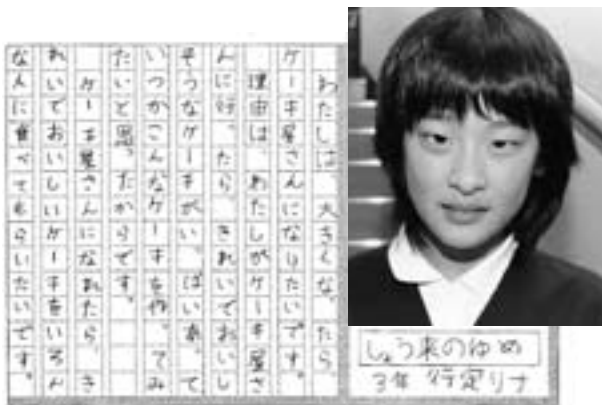 しょう来のゆめ
3年 行定リナ
わたしは、大きくなったら
ケーキ屋さんになりたいです。
理由は、わたしがケーキ屋さ
んに行ったら、きれいでおいし
そうなケーキがいっぱいあって
いつかこんなケーキを作ってみ
たいと思ったからです。
ケーキ屋さんになれたら、き
れいでおいしいケーキをいろん
な人に食べてもらいたいです。